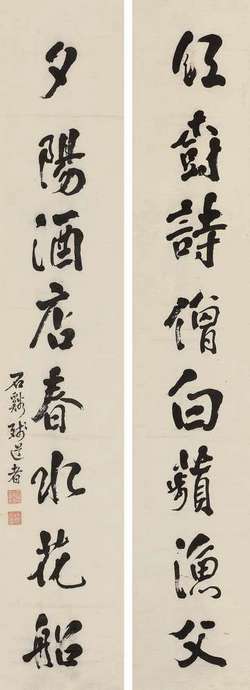 紅樹詩僧白蘋漁父
夕陽酒店春水花船
石谿殘道者